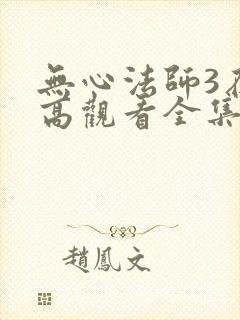 無心法師3在
高觀看全集
趙鳳文